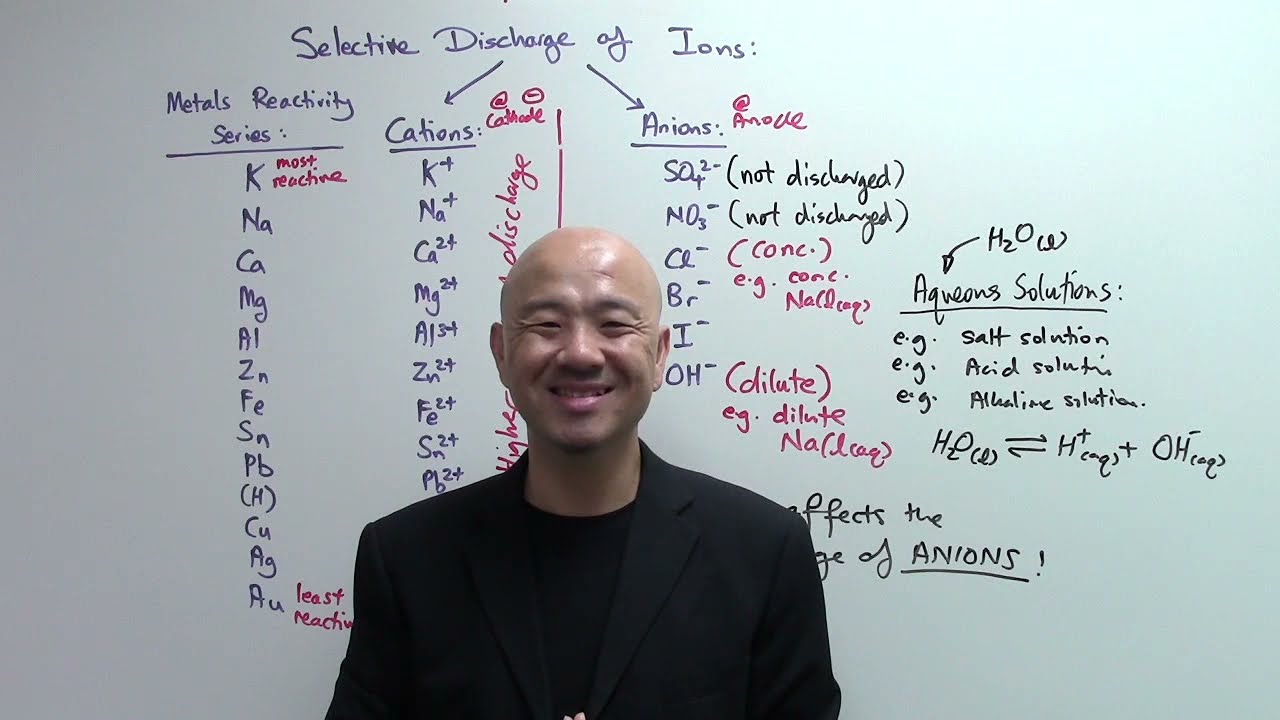 Selective Discharge of Ions:
Metals Reactivity
Series:
K most
reactive
Na
Ca
Mg
Al
Zn
Fe
Sn
Pb
(H)
Cu
Ag
Au least
Cations: @ ⊖
Cathode
K+
Na+
Ca2+
Mg2+
Al3+
Zn2+
Fe2+
Sn2+
Pb2+
discharge
Anions: @
Anode
SO42- (not discharged)
NO3- (not discharged)
Cl- (conc.)
e.g. conc.
NaCl(aq)
Br-
I-
OH- (dilute)
eg. dilute
NaCl(aq)
H2O(l)
Aqueous Solutions:
e.g. salt solution
e.g. Acid
e.g. Alkaline solution.
H2O(l) ⇌ H+(aq) + OH-(aq)
affects the
of ANIONS!